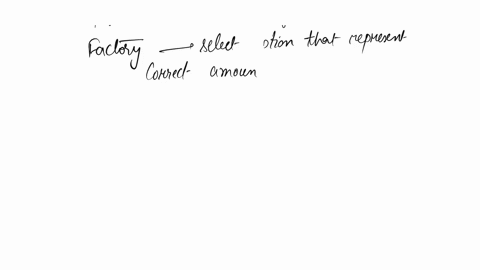 Factory → select otion that represent
Correct amoun